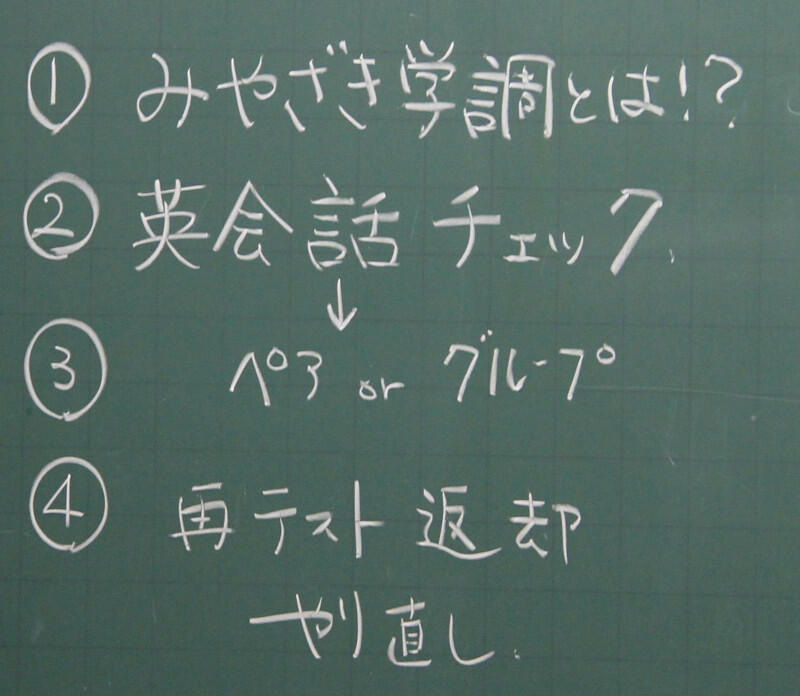 ① みやざき学調とは!?
② 英会話チェック.
↓
③ ペア or グループ
④ 再テスト返却
やり直し.